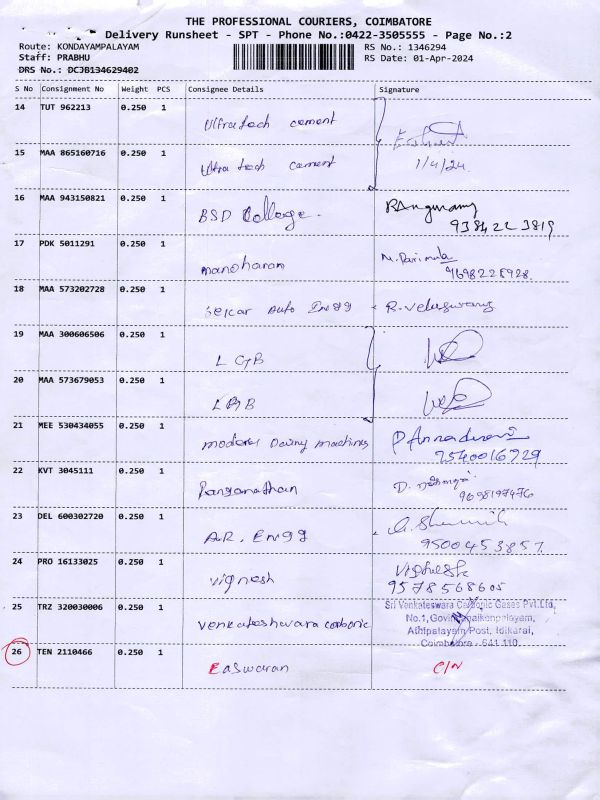 THE PROFESSIONAL COURIERS, COIMBATORE
Delivery Runsheet - SPT - Phone No.:0422-3505555 - Page No.:2
Route: KONDAYAMPALAYAM RS No.: 1346294
Staff: PRABHU RS Date: 01-Apr-2024
DRS No.: DCJB134629402
S No Consignment No Weight PCS Consignee Details Signature
14 TUT 962213 0.250 1 Ultratech cement
15 MAA 865160716 0.250 1 Ultra tech cement 1/4/24
16 MAA 943150821 0.250 1 BSD College. RAnguswamy
9384223819
17 PDK 5011291 0.250 1 manoharan M. Parimala
9698228928
18 MAA 573202728 0.250 1 Selcar Auto Engg R. Veluswamy
19 MAA 300606506 0.250 1 LGB
20 MAA 573679053 0.250 1 LGB
21 MEE 530434055 0.250 1 modern Dairy machines P Annadurai
7540016929
22 KVT 3045111 0.250 1 Ranganathan D.
9698197476
23 DEL 600302720 0.250 1 A.R. Engg
9500453857
24 PRO 16133025 0.250 1 vignesh Vignesh
9578568605
25 TRZ 320030006 0.250 1 Venkateshwara carbonic Sri Venkateswara Carbonic Gases Pvt.Ltd,
No.1, Govindanaikenpalayam,
Athipalayam Post, Idikarai,
Coimbatore - 641 110.
26 TEN 2110466 0.250 1 Easwaran C/N